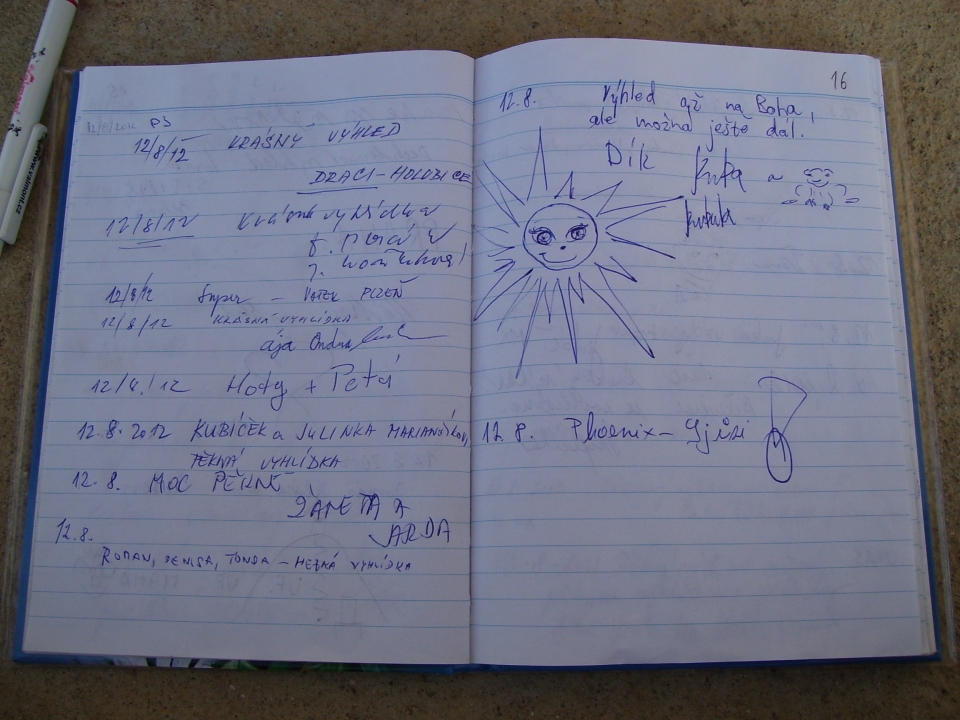 12/8/2012 PS
12/8/12 KRÁSNÝ VÝHLED
DRACI-HOLUBICE
12/8/12 Krásná vyhlídka
12/8/12 Super - VOTEK PLZEŇ
12/8/12 KRÁSNÁ VYHLÍDKA
ája Ondra
12/8/12 Hody + Petú
12.8.2012 KUBÍČEK a JULINKA
PĚKNÁ VYHLÍDKA
12.8. MOC PĚKNÉ
ŽANETA A
JARDA
12.8.
ROMAN, DENISA, TONDA - HEZKÁ VYHLÍDKA
16
12.8. Výhled až na Boha,
ale možná ještě dál.
Dík Kuka a
Kubula
12.8. Phoenix-